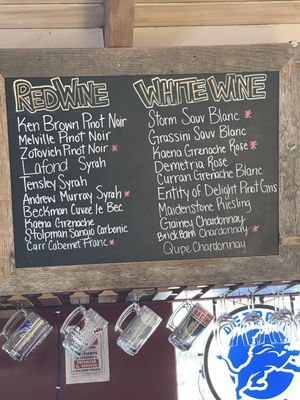 RED WINE
Ken Brown Pinot Noir
Melville Pinot Noir
Zotovich Pinot Noir *
Lafond Syrah
Tensley Syrah
Andrew Murray Syrah *
Beckman Cuvee le Bec
Kaena Grenache
Stolpman Sangio Carbonic
Carr Cabernet Franc *
WHITE WINE
Storm Sauv Blanc *
Grassini Sauv Blanc
Kaena Grenache Rose *
Demetria Rose
Curran Grenache Blanc
Entity of Delight Pinot Gris
Maidenstone Riesling
Gainey Chardonnay
Brick Barn Chardonnay *
Qupe Chardonnay